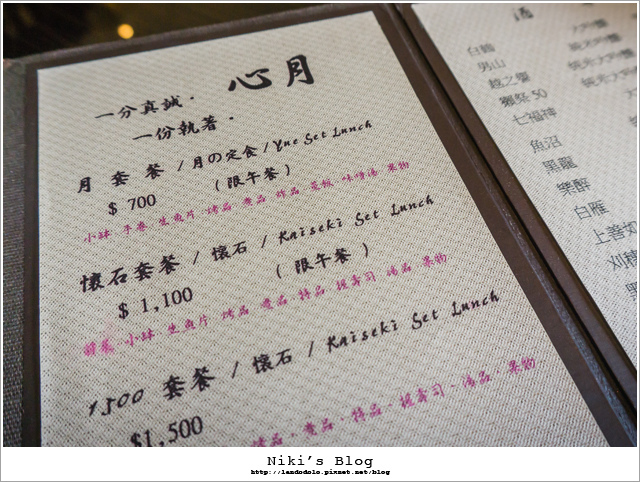 心月
一分真誠．
一份執著．
月 套 餐 / 月の定食 / Yue Set Lunch
$ 700 （ 限午餐 ）
小缽 手卷 生魚片 烤品 煮品 炸品 菜飯 味增湯 果物
懷石套餐 / 懷石 / Kaiseki Set Lunch
$ 1,100 （ 限午餐 ）
前菜 小缽 生魚片 烤品 煮品 特品 握壽司 湯品 果物
1500 套餐 / 懷石 / Kaiseki Set Lunch
$1,500
烤品．煮品．特品．握壽司．湯品．果物
酒
白鶴
男山
越之譽
獺祭 50
七福神
魚沼
黑龍
樂醉
白雁
上善如
刈穗
Niki's Blog
http://landodolo.pixnet.net/blog